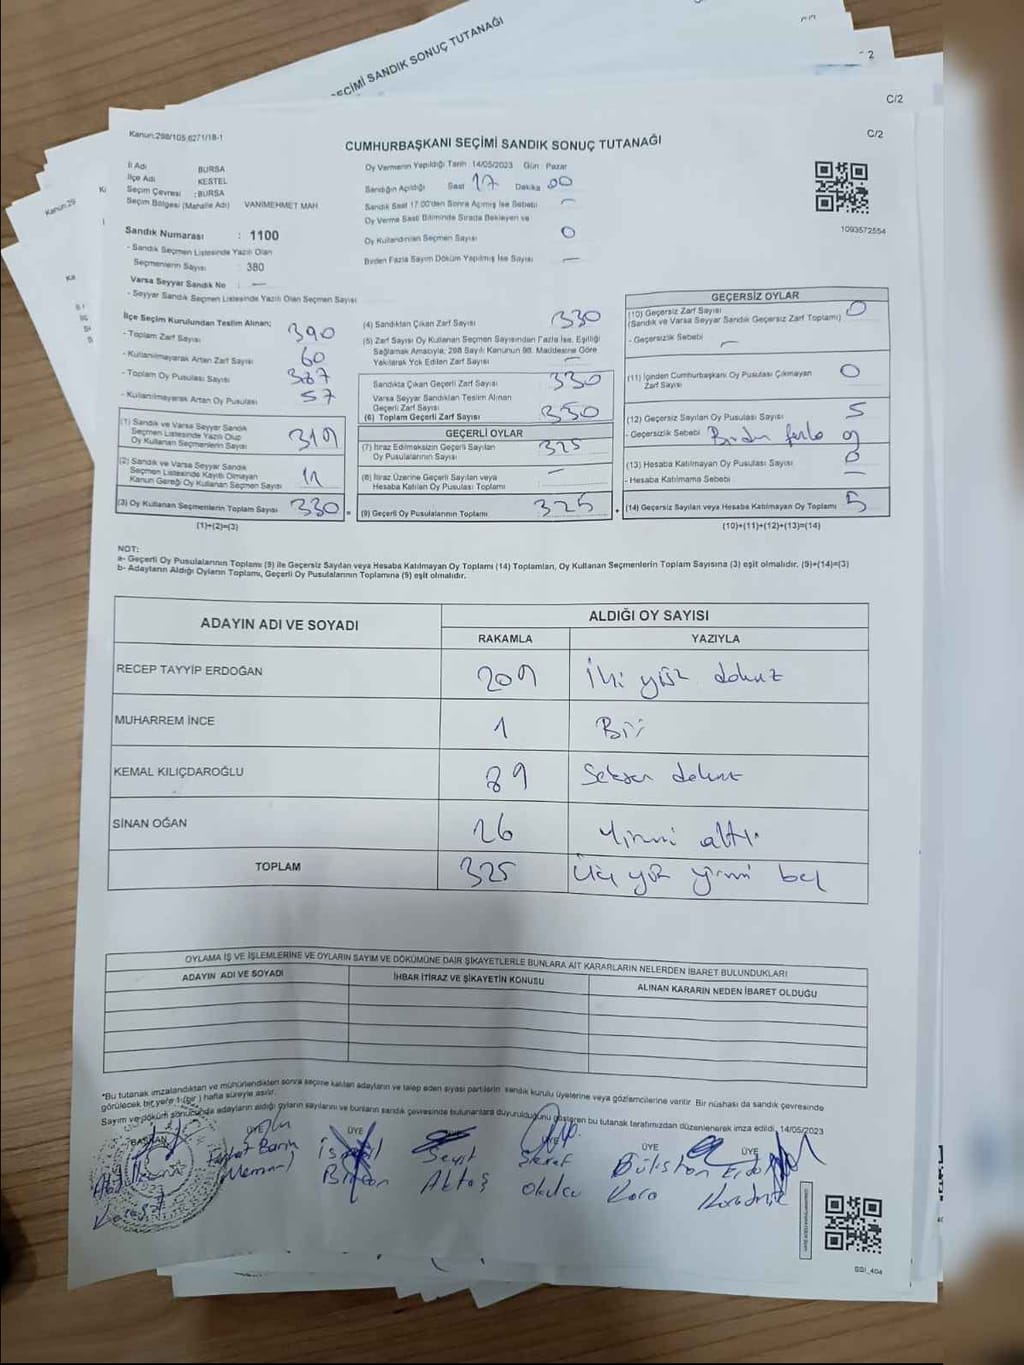 ECİMİ SANDIK SONUÇ TUTANAĞI
2
C/2
Kanun:29
Kanun:298/105,6271/18-1
CUMHURBAŞKANI SEÇİMİ SANDIK SONUÇ TUTANAĞI
C/2
İl Adı BURSA
İlçe Adı KESTEL
Seçim Çevresi :BURSA
Seçim Bölgesi (Mahalle Adı) VANİMEHMET MAH
Oy Vermenin Yapıldığı Tarih 14/05/2023 Gün Pazar
Sandığın Açıldığı Saat 17 Dakika 00
Sandık Saat 17.00'den Sonra Açılmış İse Sebebi –
Oy Verme Saati Bitiminde Sırada Bekleyen ve
Oy Kullandırılan Seçmen Sayısı 0
Birden Fazla Sayım Döküm Yapılmış İse Sayısı —
1093572554
Sandık Numarası : 1100
- Sandık Seçmen Listesinde Yazılı Olan
Seçmenlerin Sayısı : 380
Varsa Seyyar Sandık No : —
- Seyyar Sandık Seçmen Listesinde Yazılı Olan Seçmen Sayısı
İlçe Seçim Kurulundan Teslim Alınan;
- Toplam Zarf Sayısı 390
- Kullanılmayarak Artan Zarf Sayısı 60
- Toplam Oy Pusulası Sayısı 387
- Kullanılmayarak Artan Oy Pusulası 57
(1) Sandık ve Varsa Seyyar Sandık
Seçmen Listesinde Yazılı Olup
Oy Kullanan Seçmenlerin Sayısı 319
(2) Sandık ve Varsa Seyyar Sandık
Seçmen Listesinde Kayıtlı Olmayan
Kanun Gereği Oy Kullanan Seçmen Sayısı 11
(3) Oy Kullanan Seçmenlerin Toplam Sayısı 330
(1)+(2)=(3)
(4) Sandıktan Çıkan Zarf Sayısı 330
(5) Zarf Sayısı Oy Kullanan Seçmen Sayısından Fazla İse, Eşitliği
Sağlamak Amacıyla; 298 Sayılı Kanunun 98. Maddesine Göre
Yakılarak Yok Edilen Zarf Sayısı —
Sandıkta Çıkan Geçerli Zarf Sayısı 330
Varsa Seyyar Sandıktan Teslim Alınan
Geçerli Zarf Sayısı
(6) Toplam Geçerli Zarf Sayısı 330
GEÇERLİ OYLAR
(7) İtiraz Edilmeksizin Geçerli Sayılan
Oy Pusulalarının Sayısı 325
(8) İtiraz Üzerine Geçerli Sayılan veya
Hesaba Katılan Oy Pusulası Toplamı —
(9) Geçerli Oy Pusulalarının Toplamı 325
GEÇERSİZ OYLAR
(10) Geçersiz Zarf Sayısı
(Sandık ve Varsa Seyyar Sandık Geçersiz Zarf Toplamı) 0
- Geçersizlik Sebebi —
(11) İçinden Cumhurbaşkanı Oy Pusulası Çıkmayan
Zarf Sayısı 0
(12) Geçersiz Sayılan Oy Pusulası Sayısı 5
- Geçersizlik Sebebi Birden fazla oy
(13) Hesaba Katılmayan Oy Pusulası Sayısı 0
- Hesaba Katılmama Sebebi —
(14) Geçersiz Sayılan veya Hesaba Katılmayan Oy Toplamı 5
(10)+(11)+(12)+(13)=(14)
NOT:
a- Geçerli Oy Pusulalarının Toplamı (9) ile Geçersiz Sayılan veya Hesaba Katılmayan Oy Toplamı (14) Toplamları, Oy Kullanan Seçmenlerin Toplam Sayısına (3) eşit olmalıdır. (9)+(14)=(3)
b- Adayların Aldığı Oyların Toplamı, Geçerli Oy Pusulalarının Toplamına (9) eşit olmalıdır.
ADAYIN ADI VE SOYADI
ALDIĞI OY SAYISI
RAKAMLA YAZIYLA
RECEP TAYYİP ERDOĞAN 209 iki yüz dokuz
MUHARREM İNCE 1 Bir
KEMAL KILIÇDAROĞLU 89 Seksen dokuz
SİNAN OĞAN 26 Yirmi altı
TOPLAM 325 Üç yüz yirmi beş
OYLAMA İŞ VE İŞLEMLERİNE VE OYLARIN SAYIM VE DÖKÜMÜNE DAİR ŞİKAYETLERLE BUNLARA AİT KARARLARIN NELERDEN İBARET BULUNDUKLARI
ADAYIN ADI VE SOYADI İHBAR İTİRAZ VE ŞİKAYETİN KONUSU ALINAN KARARIN NEDEN İBARET OLDUĞU
*Bu tutanak imzalandıktan ve mühürlendikten sonra seçime katılan adayların ve talep eden siyasi partilerin sandık kurulu üyelerine veya gözlemcilerine verilir. Bir nüshası da sandık çevresinde
görülecek bir yere 1 (bir ) hafta süreyle asılır.
Sayım ve döküm sonucunda adayların aldığı oyların sayılarını ve bunların sandık çevresinde bulunanlara duyurulduğunu gösteren bu tutanak tarafımızdan düzenlenerek imza edildi. 14/05/2023
BAŞKAN ÜYE ÜYE ÜYE ÜYE ÜYE
Seyit
Aktaş
Okulcu
Kara